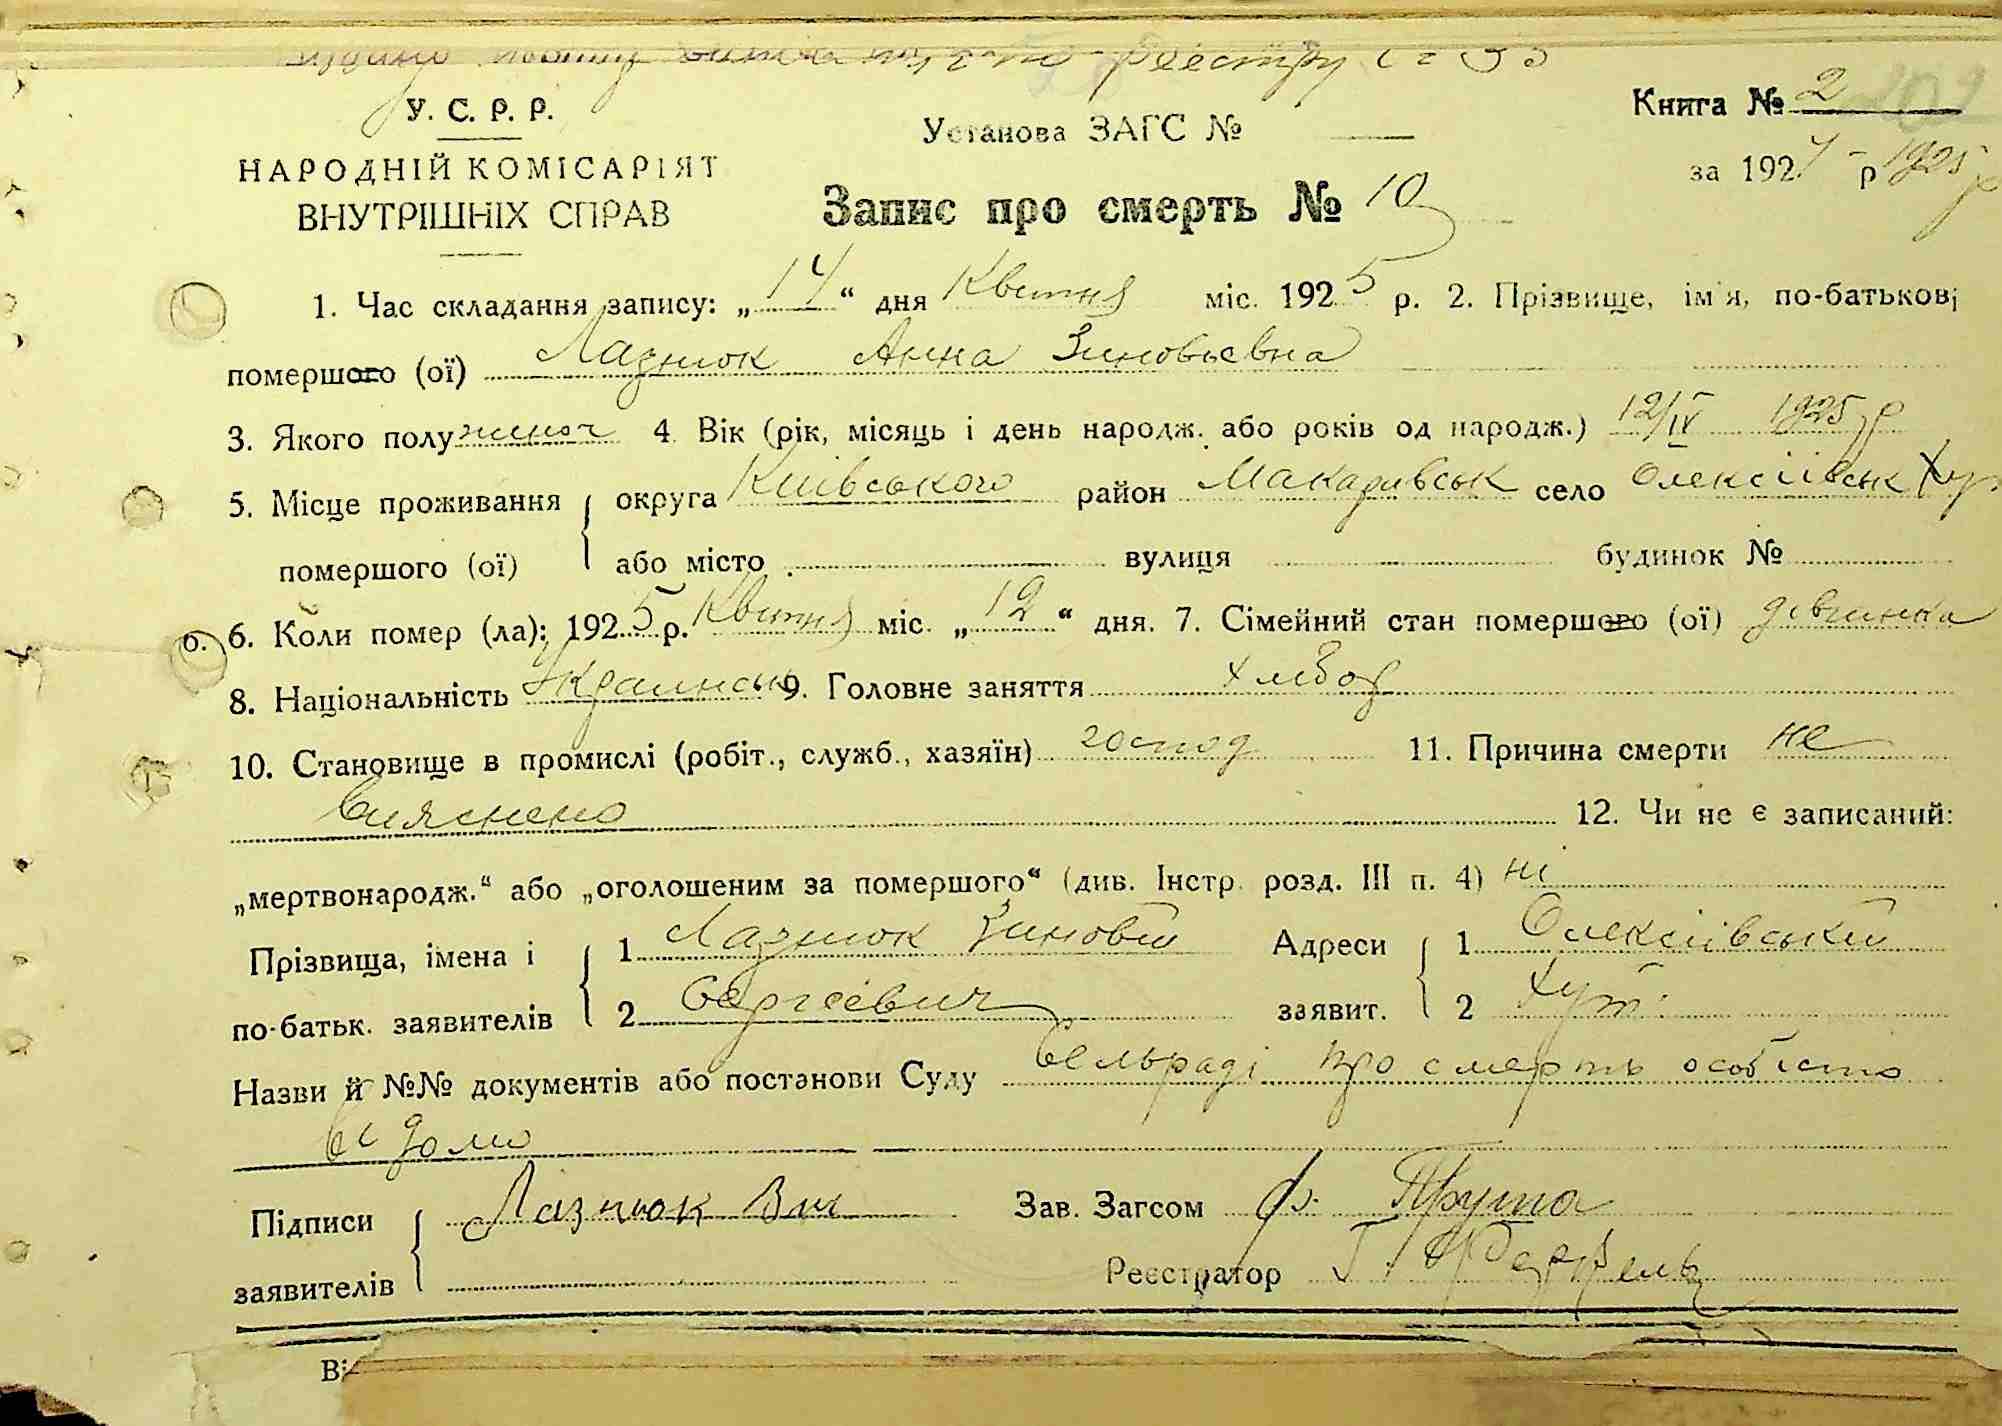 реєстру
Книга № 2
У. С. Р. Р.
Установа ЗАГС №
за 192 р 1925 р
НАРОДНІЙ КОМІСАРІЯТ
ВНУТРІШНІХ СПРАВ
Запис про смерть № 10
1. Час складання запису: „14“ дня Квітня міс. 1925 р. 2. Прізвище, ім'я, по-батькові
помершого (ої) Лазнюк Анна Зиновьевна
3. Якого полу жиноч 4. Вік (рік, місяць і день народж. або років од народж.) 12/IV 1925 р
5. Місце проживання округа Київського район Макарівськ село Олексіївськ Хут.
помершого (ої) або місто вулиця будинок №
6. 6. Коли помер (ла): 1925 р. Квітня міс. „12“ дня. 7. Сімейний стан помершого (ої) дівчинка
8. Національність Украинська 9. Головне заняття хлібор
10. Становище в промислі (робіт., служб., хазяїн) господ 11. Причина смерти не
вияснено 12. Чи не є записаний:
„мертвонародж.“ або „оголошеним за помершого“ (див. Інстр. розд. III п. 4) ні
Прізвища, імена і 1 Лазнюк Зиновій Адреси 1 Олексіївський
по-батьк. заявителів 2 Сергеевич заявит. 2 Хут.
Назви й №№ документів або постанови Суду Сельраді про смерть особисто
відомо
Підписи Лазнюк Зин Зав. Загсом
заявителів Реєстратор
Ві